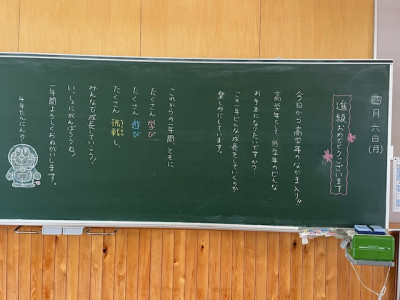 四月六日(月)
進級おめでとうございます
今日から高学年のなかま入り!!
高学年として低学年のどんな
お手本になりたいですか?
この一年どんな成長をしていくのか
楽しみにしています。
これからの一年間 ともに
たくさん学び
たくさん遊び
たくさん挑戦し、
みんなで成長していこう!
いっしょにがんばろうね!
一年間よろしくおねがいします。
4年たんにんより